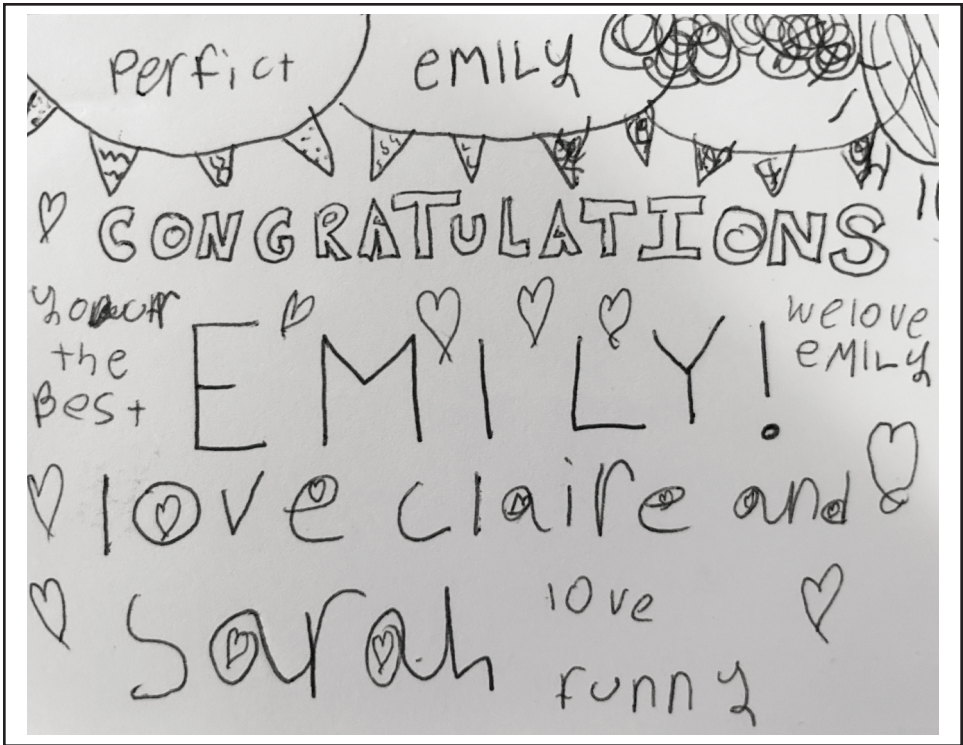 perfict EMILY
CONGRATULATIONS
the
Best
EMILY!
we love
EMILY
love claire and
Sarah
love
funny